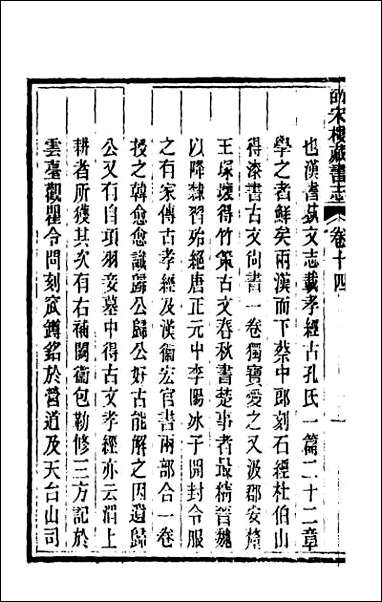 皕宋樓藏書志 卷十四
也漢書藝文志載孝經古孔氏一篇二十二章
學之者鮮矣兩漢而下蔡中郎刻石經杜伯山
得漆書古文尙書一卷獨寶愛之又汲郡安釐
王塚壞得竹策古文春秋書楚事者最精晉魏
以降隸習殆絕唐正元中李陽冰子開封令服
之有家傳古孝經及漢衞宏官書兩部合一卷
授之韓愈愈識歸公歸公好古能解之因遺歸
公又有自項羽妾墓中得古文孝經亦云渭上
耕者所獲其次有右補闕衞包勒修三方記於
雲臺觀瞿令問刻窊罇銘於營道及天台山司